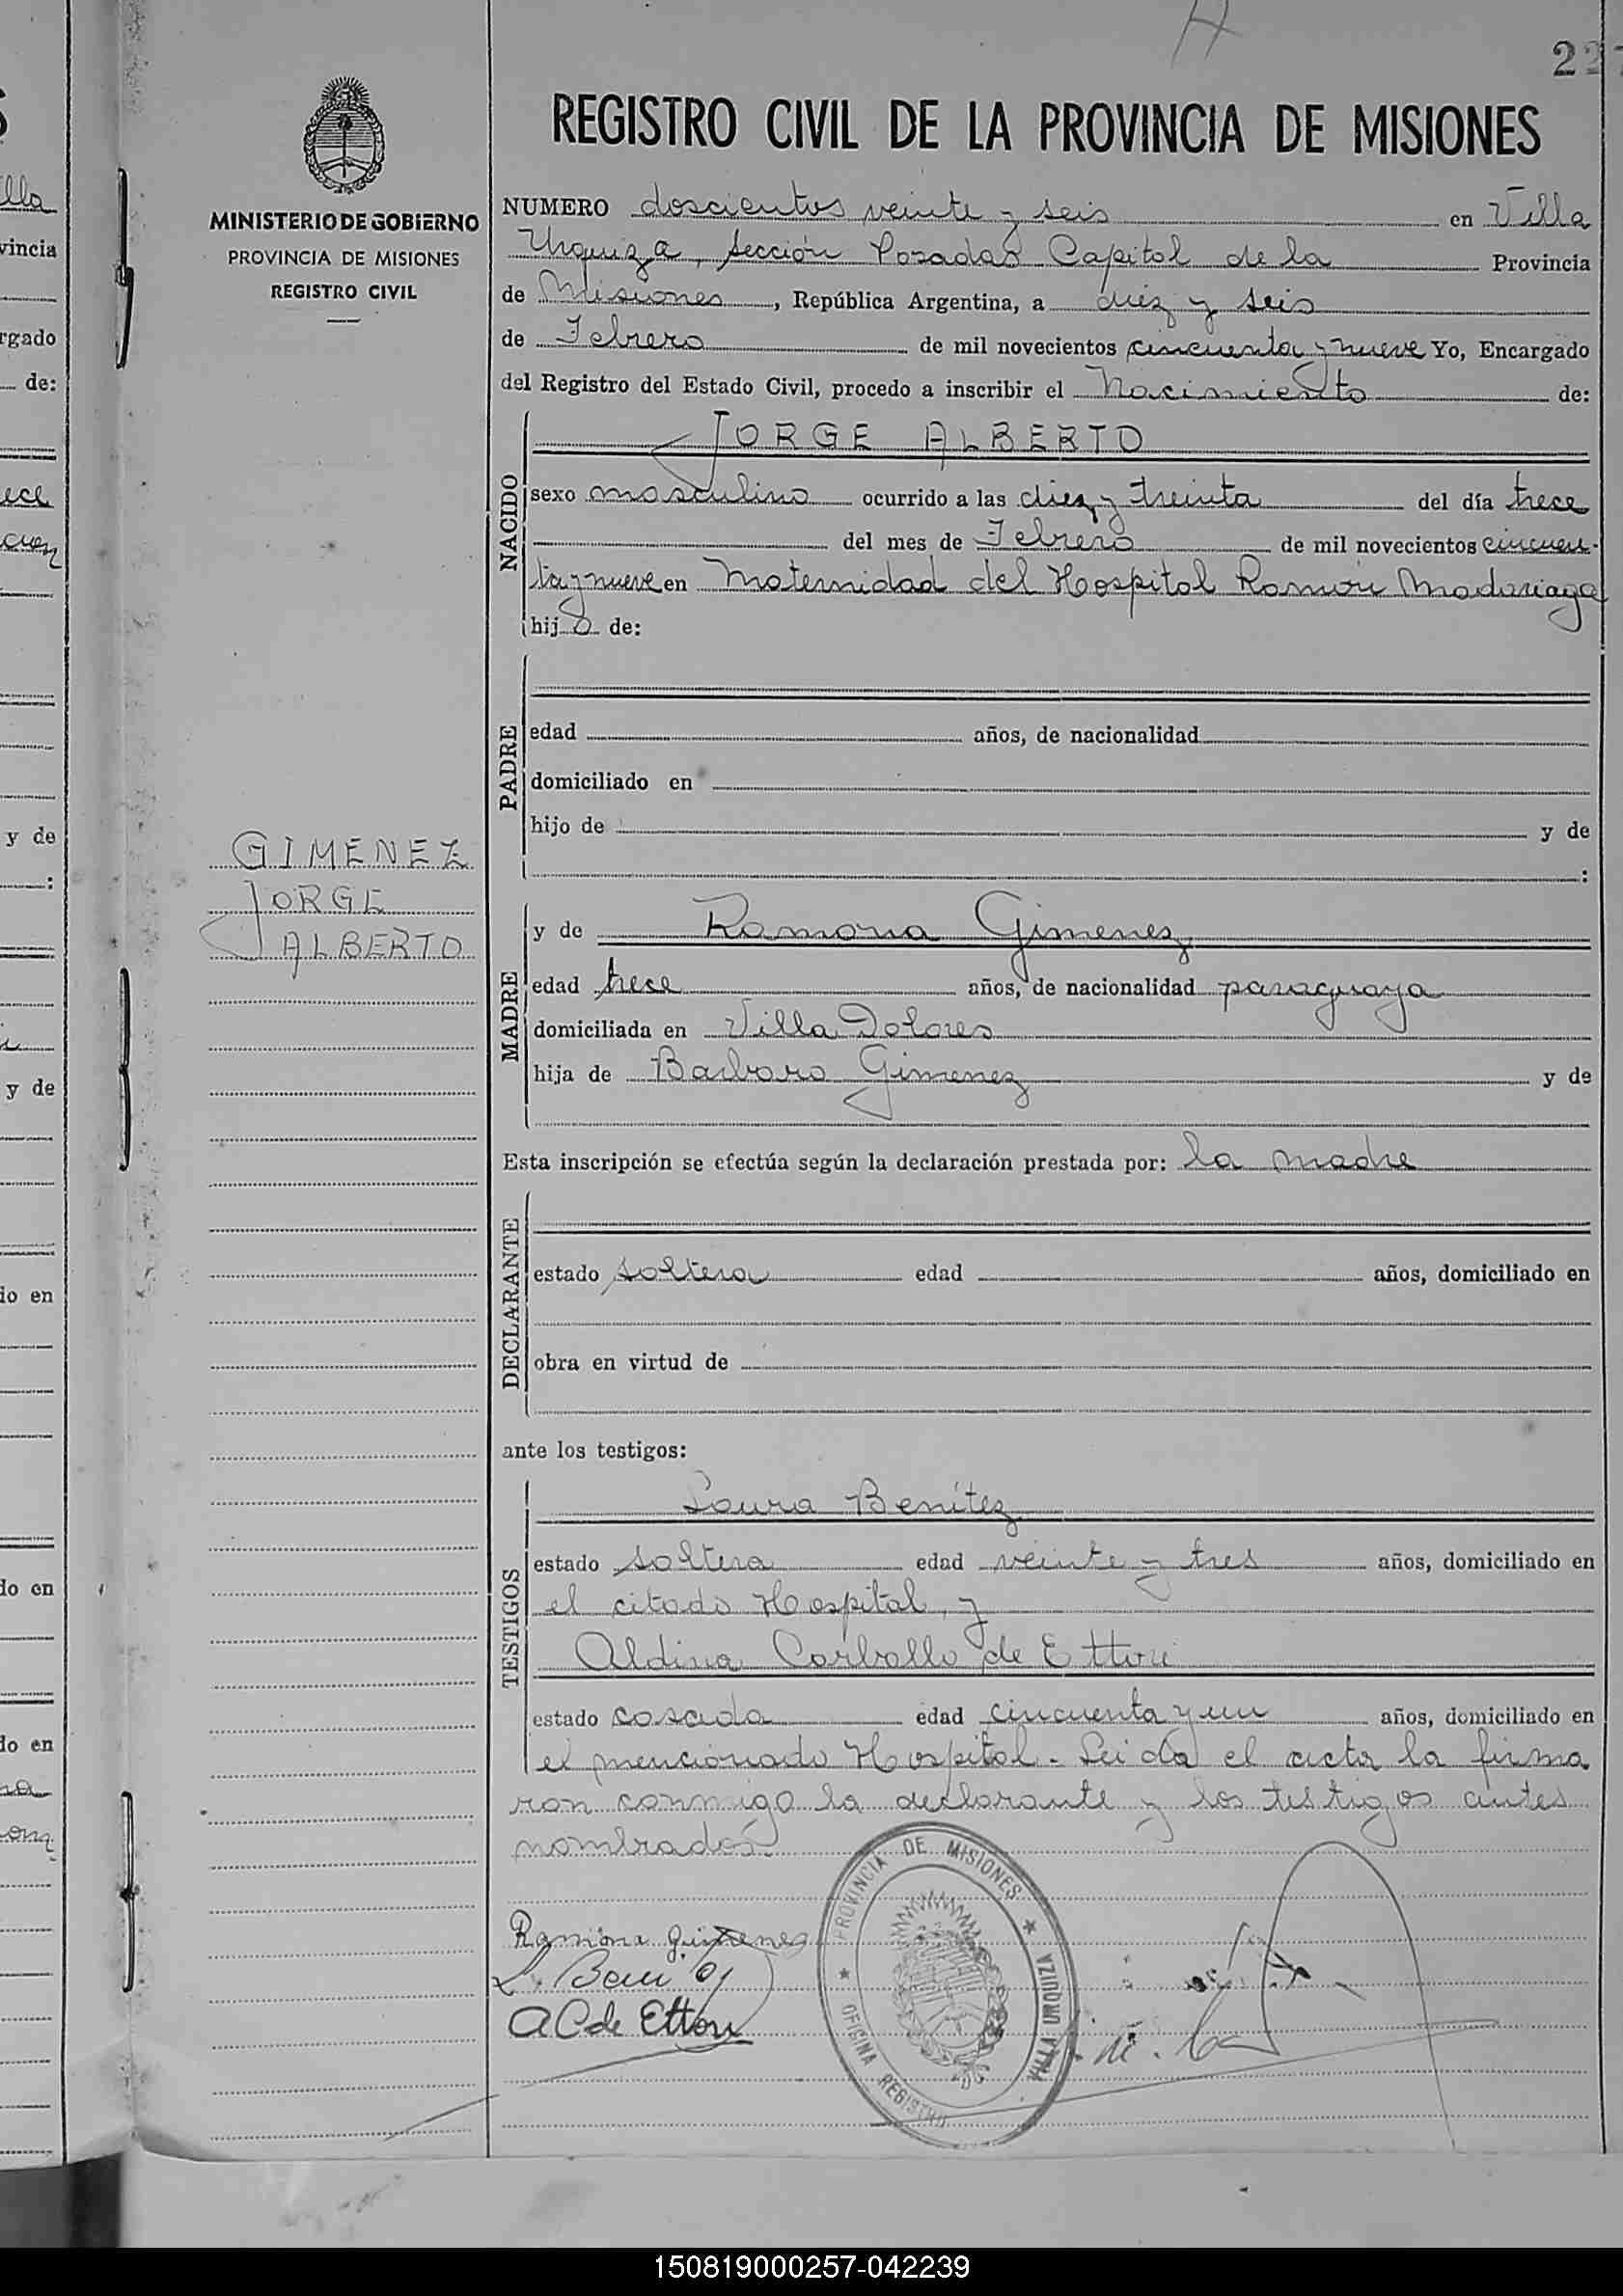 227
REGISTRO CIVIL DE LA PROVINCIA DE MISIONES
MINISTERIO DE GOBIERNO
PROVINCIA DE MISIONES
REGISTRO CIVIL
NUMERO doscientos veinte y seis en Villa
Urquiza, sección Posadas Capital de la Provincia
de Misiones, República Argentina, a diez y seis
de Febrero de mil novecientos cincuenta y nueve Yo, Encargado
del Registro del Estado Civil, procedo a inscribir el Nacimiento de:
NACIDO
JORGE ALBERTO
sexo masculino ocurrido a las diez y treinta del día trece
del mes de Febrero de mil novecientos cincuen-
ta y nueve en Maternidad del Hospital Ramón Madariaga
hijo de:
PADRE
edad años, de nacionalidad
domiciliado en
hijo de y de
:
GIMENEZ
JORGE
ALBERTO
MADRE
y de Ramona Gimenez
edad trece años, de nacionalidad paraguaya
domiciliada en Villa Dolores
hija de Barbara Gimenez y de
Esta inscripción se efectúa según la declaración prestada por: la madre
DECLARANTE
estado soltera edad años, domiciliado en
obra en virtud de
ante los testigos:
TESTIGOS
Laura Benítez
estado soltera edad veinte y tres años, domiciliado en
el citado Hospital, y
Aldina Carballo de Ettori
estado casada edad cincuenta y un años, domiciliado en
el mencionado Hospital - Leida el acta la firma
ron conmigo la declarante y los testigos antes
nombrados.
Ramona Gimenez
A C de Ettori
PROVINCIA DE MISIONES
VILLA URQUIZA
OFICINA REGISTRO
150819000257-042239